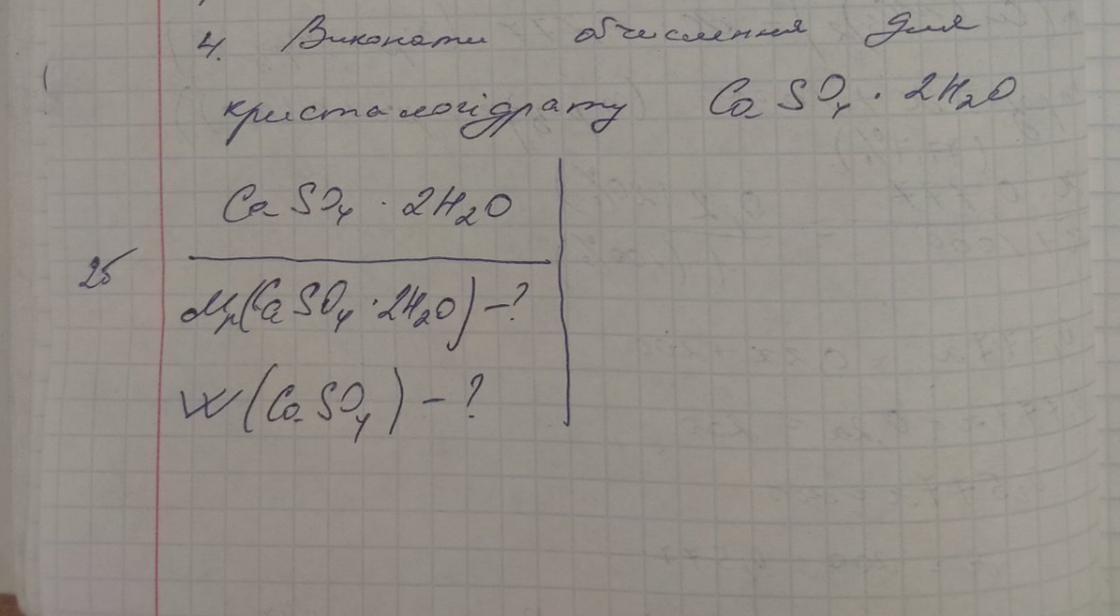 4. Виконати обчислення для
кристалогідрату CaSO₄ · 2H₂O
CaSO₄ · 2H₂O
2б
Mr(CaSO₄ · 2H₂O) – ?
W(CaSO₄) – ?